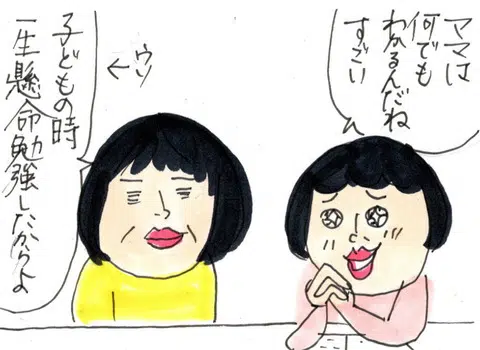 ママは
何でも
わかるんだね
すごい
←ウソ
子どもの時
一生懸命勉強したからよ